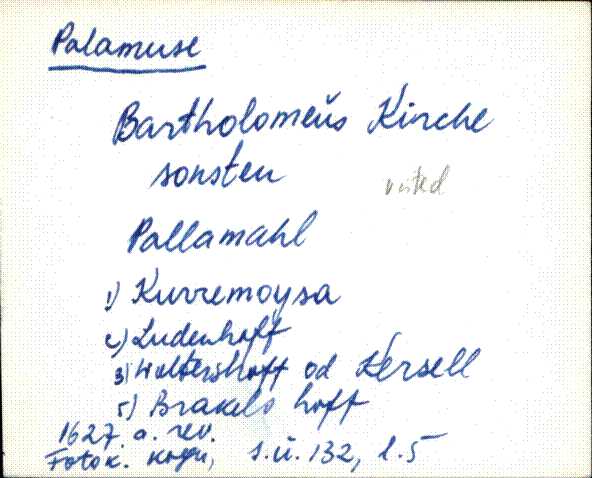 Palamuse
Bartholomeŭs Kirche
sonsten
Pallamahl
1) Kurremoysa
2) Ludenhoff
3) Woltershoff od Kersell
5) Brakels hoff
1627. a. rev.
Fotok. kogu, s.ü. 132, l. 5